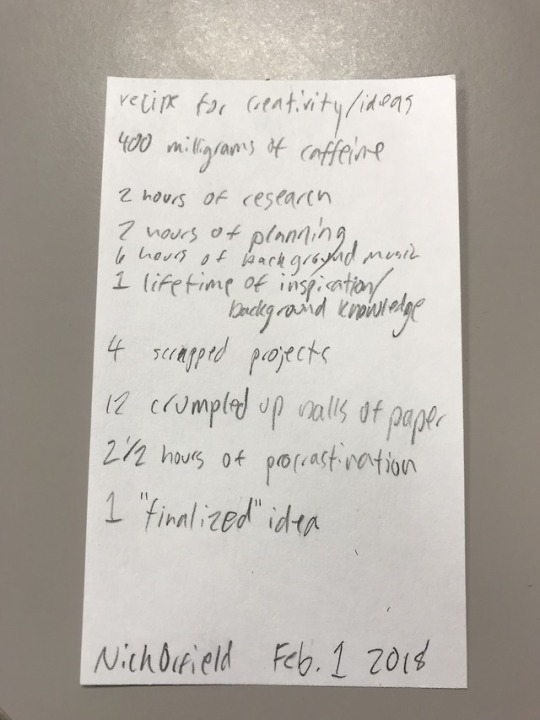 recipe for creativity/ideas
400 milligrams of caffeine
2 hours of research
2 hours of planning
6 hours of background music
1 lifetime of inspiration/
background knowledge
4 scrapped projects
12 crumpled up balls of paper
2 1/2 hours of procrastination
1 "finalized" idea
Nich Orfield Feb. 1 2018